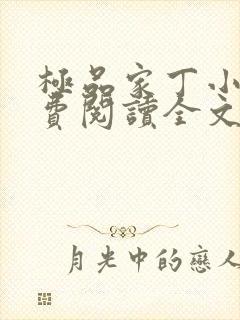 極品家丁小
費閱讀全文
月光中的戀人